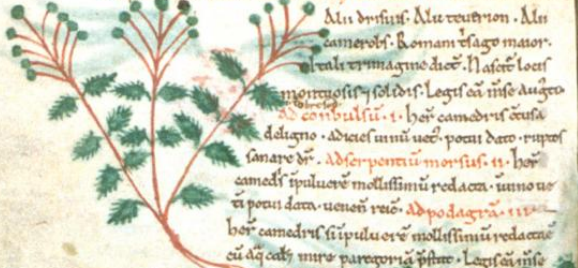 Alii drisius. Alii teuerion. Alii
camerols. Romani tsago maior.
Itali trimagine dict. Nascit locis
montuosis 7 solidis. Legis eā mse Augto
Ad conuulsū. i. her camedris cōtusa
deligno. adicies uinū uet. potui dato. ruptos
sanare dr̄. Ad serpentiū morsus. ii. her
camedis ī puluerē mollissimū redacta. uino ue
ti potui data. uenen reic. Ad podagrā. iii
her camedris sū puluere mollissimū redactaē
cū aq cali mire paregoriā p̄stat. Legis eā mse